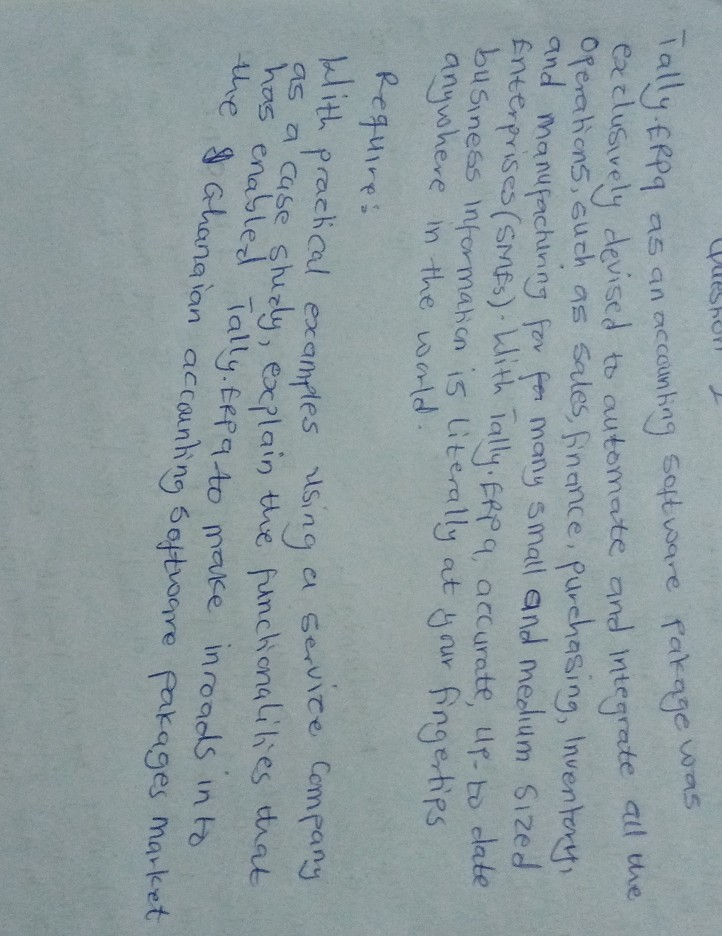 Question 1
Tally.ERP9 as an accounting software pakage was
exclusively devised to automate and integrate all the
operations, such as sales, finance, purchasing, inventory,
and manufacturing for for many small and medium sized
Enterprises (SMEs). With Tally.ERP9, accurate, up-to date
business information is literally at your fingertips
anywhere in the world.
Require:
With practical examples using a service company
as a case study, explain the functionalities that
has enabled Tally.ERP9 to make inroads into
the Ghanaian accounting software pakages market